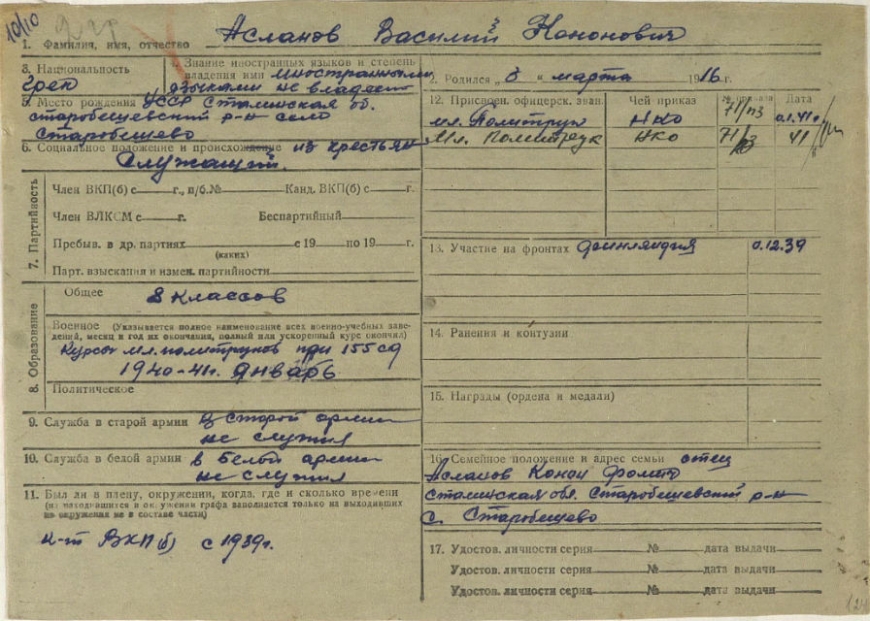 10/10
1. Фамилия, имя, отчество Асланов Василий Кононович
3. Национальность
грек
4. Знание иностранных языков и степень
владения ими иностранными
языками не владею
5. Место рождения УССР Сталинская об.
старобешевский р-н село
Старобешево
6. Социальное положение и происхождение из крестьян
Служащий.
7. Партийность
Член ВКП(б) с г., п/б.№ Канд. ВКП(б) с г.
Член ВЛКСМ с г. Беспартийный
Пребыв. в др. партиях с 19 по 19 г.
(каких)
Парт. взыскания и измен. партийности
8. Образование
Общее 8 классов
Военное (Указывается полное наименование всех военно-учебных заве-
дений, месяц и год их окончания, полный или ускоренный курс окончил)
Курсы мл. политруков при 155 сд
1940-41г. январь
Политическое
9. Служба в старой армии в старой армии
не служил
10. Служба в белой армии в белой армии
не служил
11. Был ли в плену, окружении, когда, где и сколько времени
(из находившихся в окружении графа заполняется только на выходивших
из окружения не в составе части)
к-т ВКП(б) с 1939г.
2. Родился „3 “ марта 1916 г.
12. Присвоен. офицерск. зван. Чей приказ № приказа Дата
мл. Политрук НКО 71/пз 01.41г
Мл. Политрук НКО 71/пз 41
13. Участие на фронтах Финляндия 0.12.39
14. Ранения и контузии
15. Награды (ордена и медали)
16. Семейное положение и адрес семьи отец
Асланов Конон Фомич
Сталинская обл. Старобешевский р-н
с. Старобешево
17. Удостов. личности серия № дата выдачи
Удостов. личности серия № дата выдачи
Удостов. личности серия № дата выдачи